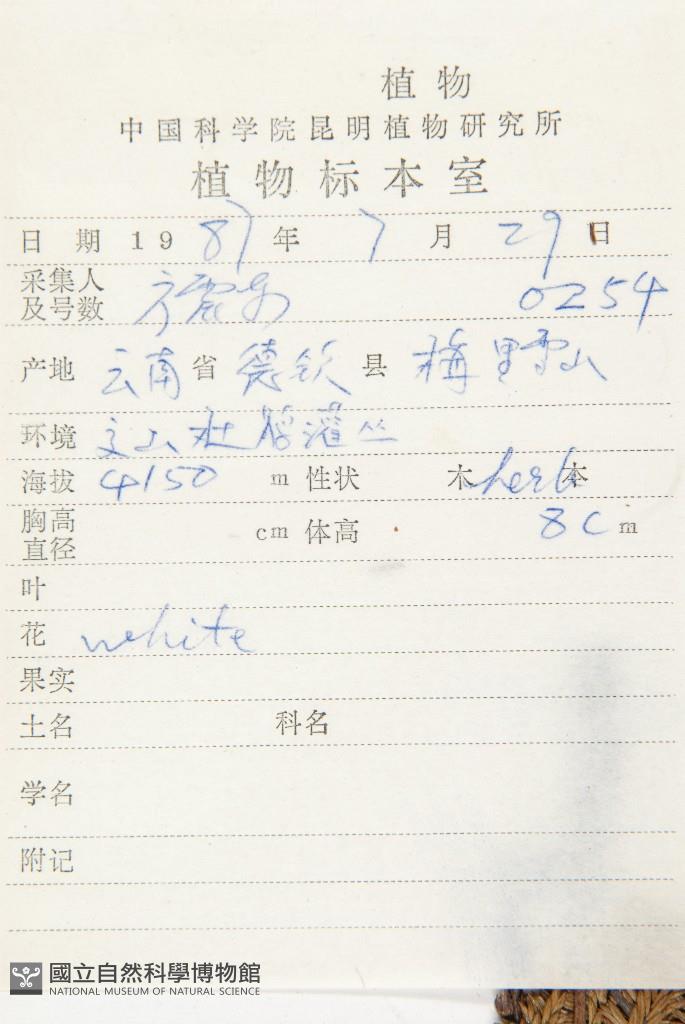 植物
中国科学院昆明植物研究所
植物标本室
日期 1987年 7月 29日
采集人及号数 0254
产地 云南省 德钦县 梅里雪山
环境 灌丛
海拔 4150 m 性状 木 herb 本
胸高直径 cm 体高 8Cm
叶
花 white
果实
土名 科名
学名
附记
國立自然科學博物館
NATIONAL MUSEUM OF NATURAL SCIENCE